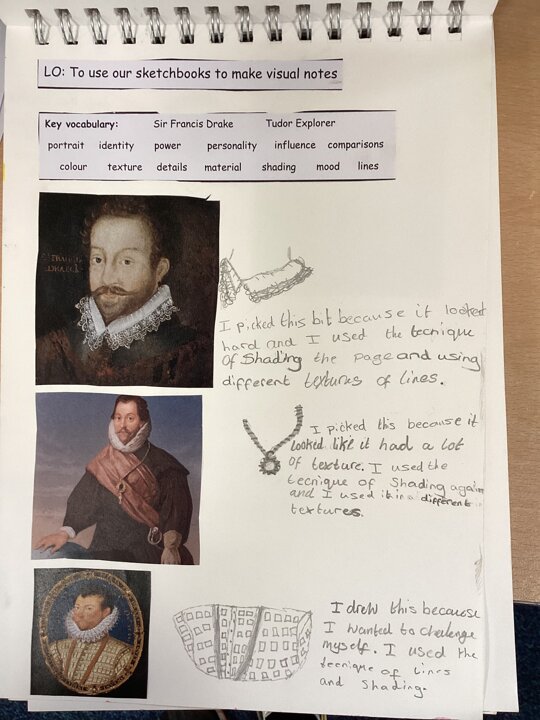 LO: To use our sketchbooks to make visual notes
Key vocabulary: Sir Francis Drake Tudor Explorer
portrait identity power personality influence comparisons
colour texture details material shading mood lines
I picked this bit because it looked
hard and I used the tecnique
of Shading the page and using
different textures of lines.
I picked this because it
looked like it had a lot
of texture. I used the
tecnique of Shading again
and I used it in a different
textures.
I drew this because
I wanted to challenge
myself. I used the
tecnique of lines
and Shading.